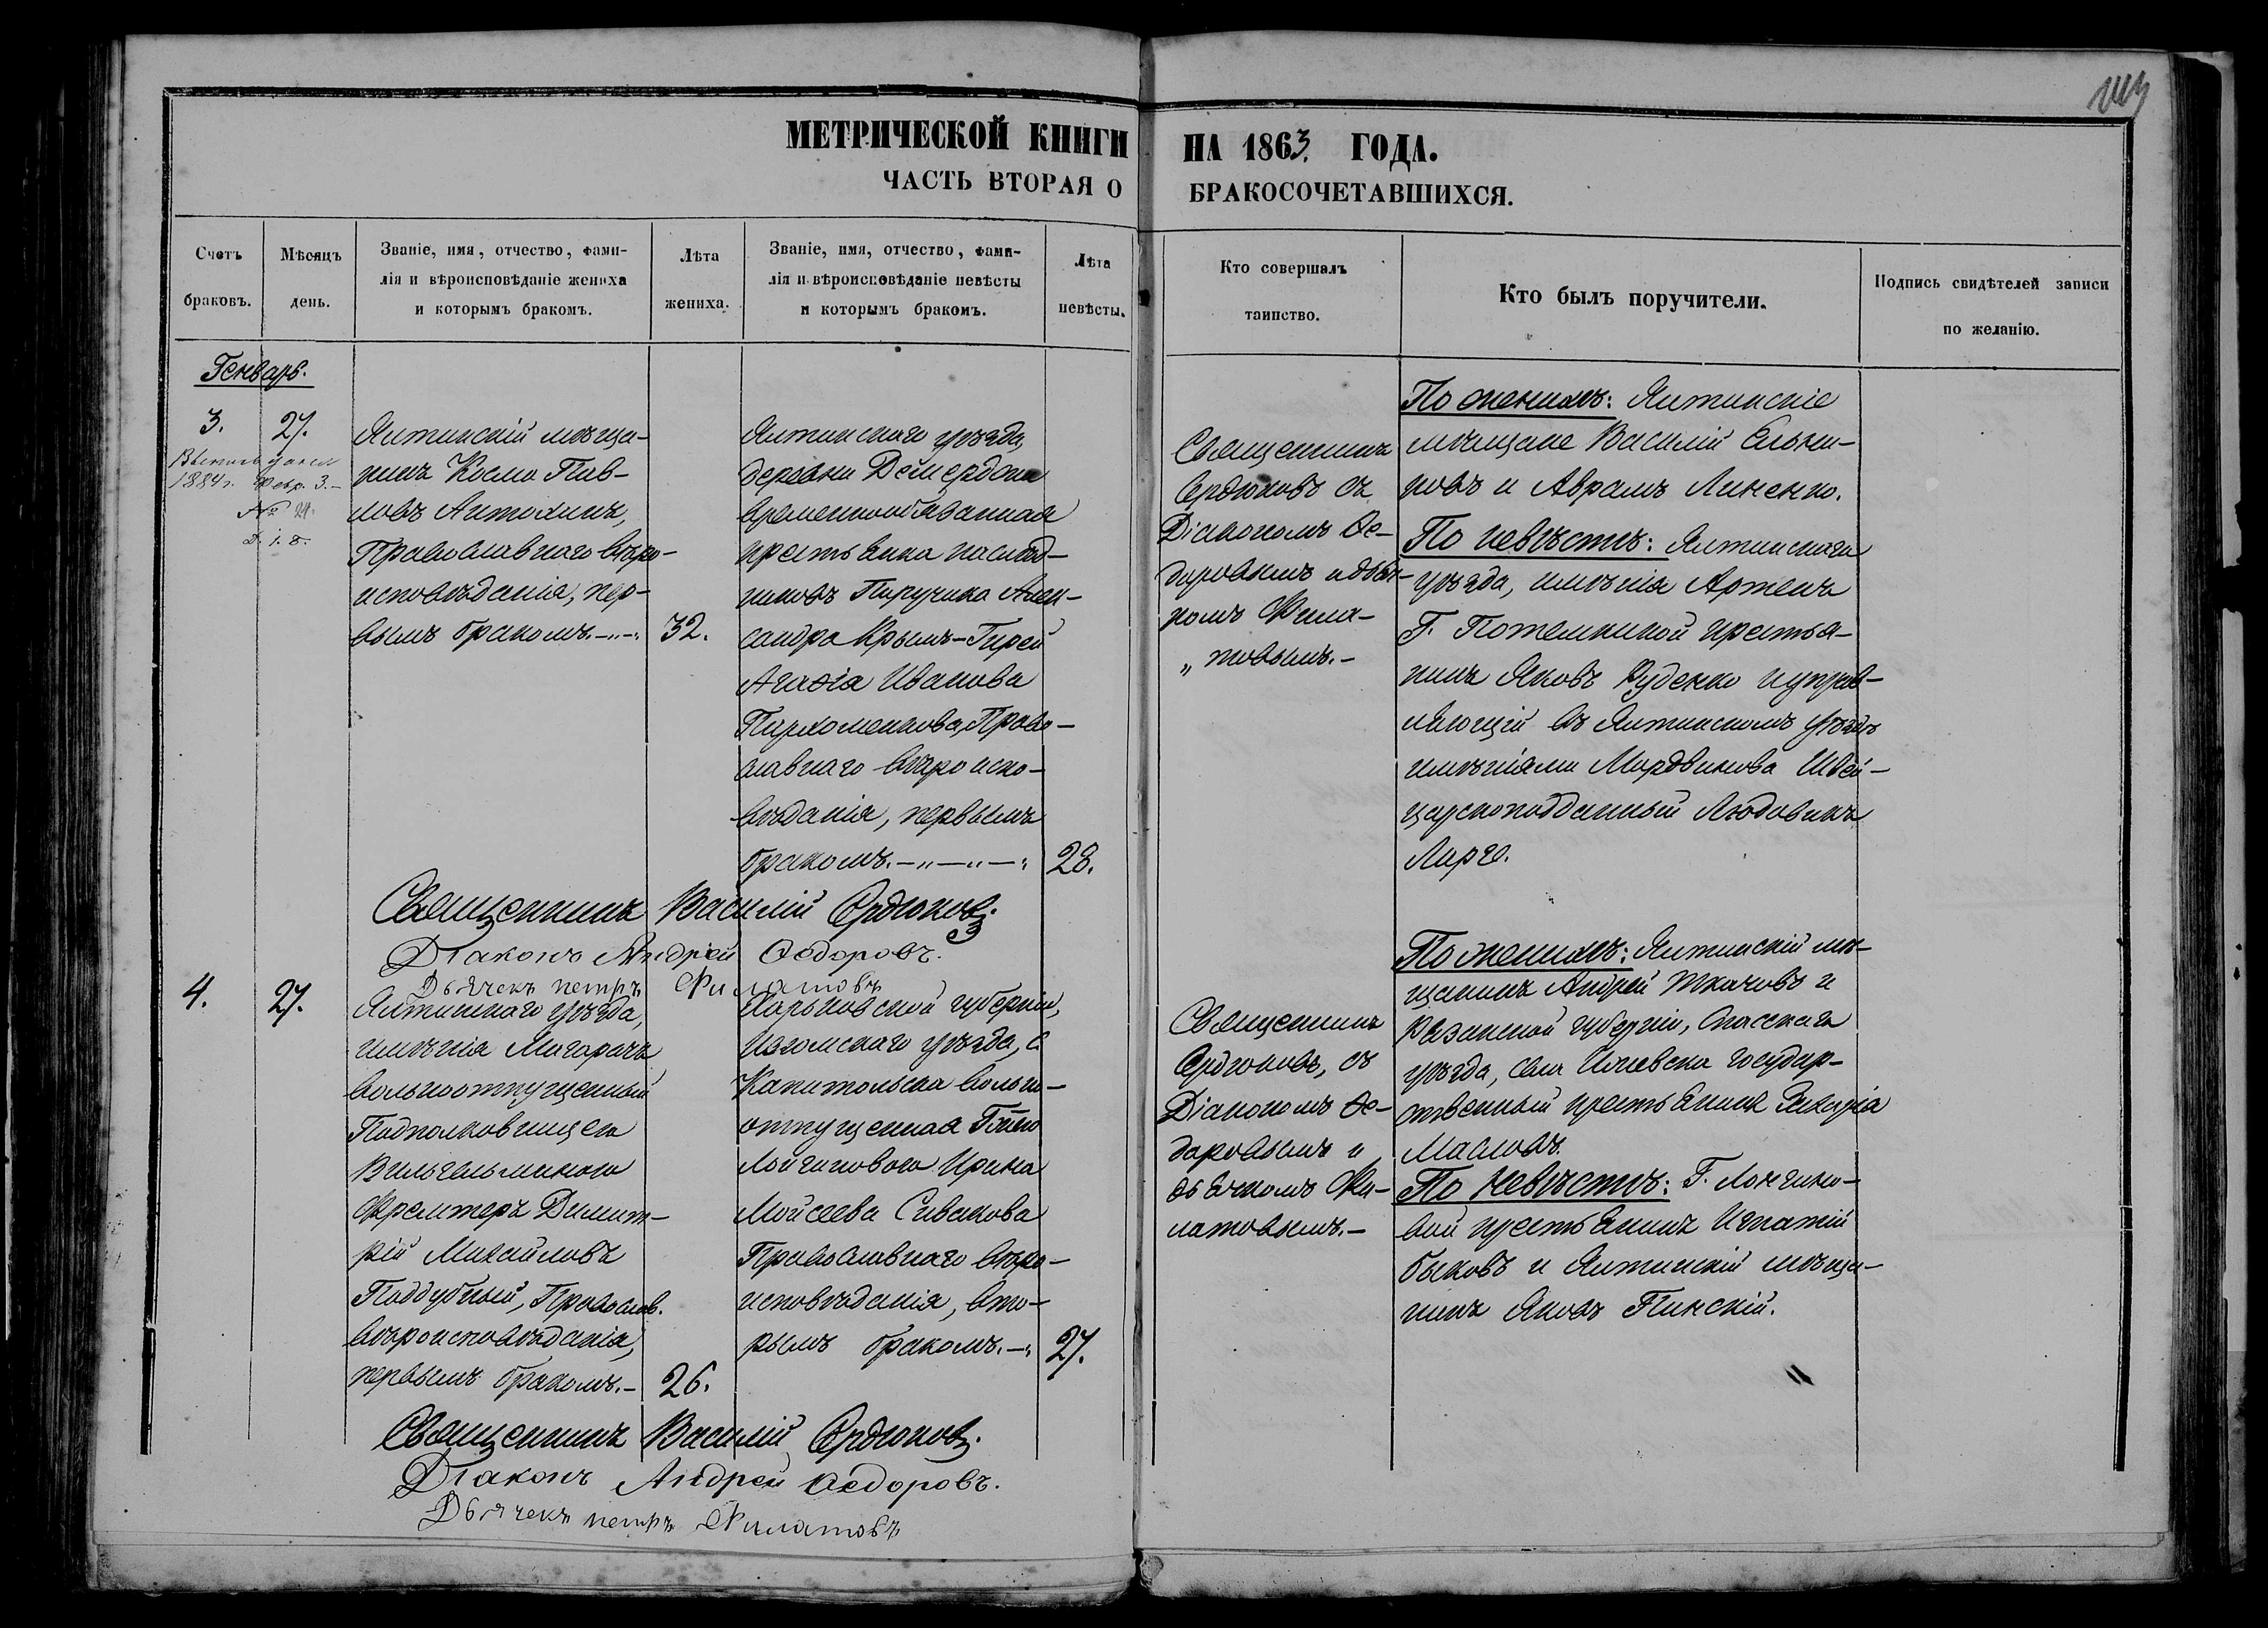 МЕТРИЧЕСКОЙ КНИГИ НА 1863 ГОДА.
ЧАСТЬ ВТОРАЯ О БРАКОСОЧЕТАВШИХСЯ.
Счетъ
браковъ.
Мѣсяцъ
день.
Званіе, имя, отчество, фами-
лія и вѣроисповѣданіе жениха
и которымъ бракомъ.
Лѣта
жениха.
Званіе, имя, отчество, фами-
лія и вѣроисповѣданіе невѣсты
и которымъ бракомъ.
Лѣта
невѣсты.
Кто совершалъ
таинство.
Кто былъ поручители.
Подпись свидѣтелей записи
по желанію.
Генварь.
3. 27.
1884 г. Февр. 3.-
Ялтинскій мѣща-
нинъ Косма Пав-
ловъ Антохинъ,
Православнаго вѣро-
исповѣданія, пер-
вымъ бракомъ. 32.
Ялтинскаго уѣзда,
деревни
временнообязанная
крестьянка наслѣд-
никовъ Поручика Алек-
сандра Крымъ-Гирей
Агаѳія Иванова
Пархоменкова, Право-
славнаго вѣроиспо-
вѣданія, первымъ
бракомъ. 28.
Священникъ
Сердюковъ съ
Діакономъ Ѳе-
доровымъ и дьяч-
комъ Фила-
„ товымъ.-
По женихѣ: Ялтинскіе
мѣщане Василій
и Аврамъ Линенко.
По невѣстѣ: Ялтинскаго
уѣзда, имѣнія Артекъ
Г. Потемкиной крестья-
нинъ Яковъ Руденко и управ-
ляющій въ Ялтинскомъ уѣздѣ
имѣніями Мордвинова Швей-
царскоподданный Людовикъ
Ларго.
Священникъ Василій Сердюковъ.
Діаконъ Андрей Ѳедоровъ.
Дьячекъ петръ Филатовъ
4. 27.
Ялтинскаго уѣзда,
имѣнія Магарачъ
вольноотпущенный
Подполковницею
Вильгельминою
Димит-
рій Михайловъ
Поддубный, Православ.
вѣроисповѣданія,
первымъ бракомъ.- 26.
Харьковской губерніи,
Изюмскаго уѣзда, с.
Капитольска вольно-
отпущенная Г-жею
Лонгиновою Ирина
Мойсеева Сивакова
Православнаго вѣро-
исповѣданія, вто-
рымъ бракомъ. 27.
Священникъ
Сердюковъ, съ
Діакономъ Ѳе-
доровымъ и
дьячкомъ Фи-
латовымъ.-
По женихѣ: Ялтинскій мѣ-
щанинъ Андрей Ткачовъ и
Казанской губерніи, Спасскаго
уѣзда, села государ-
ственный крестьянинъ Захарія
Масловъ.
По невѣстѣ: Г. Лонгино-
вой крестьянинъ Игнатій
Быковъ и Ялтинскій мѣща-
нинъ Яковъ Пинскій.
Священникъ Василій Сердюковъ.
Діаконъ Андрей Ѳедоровъ.
Дьячекъ петръ Филатовъ